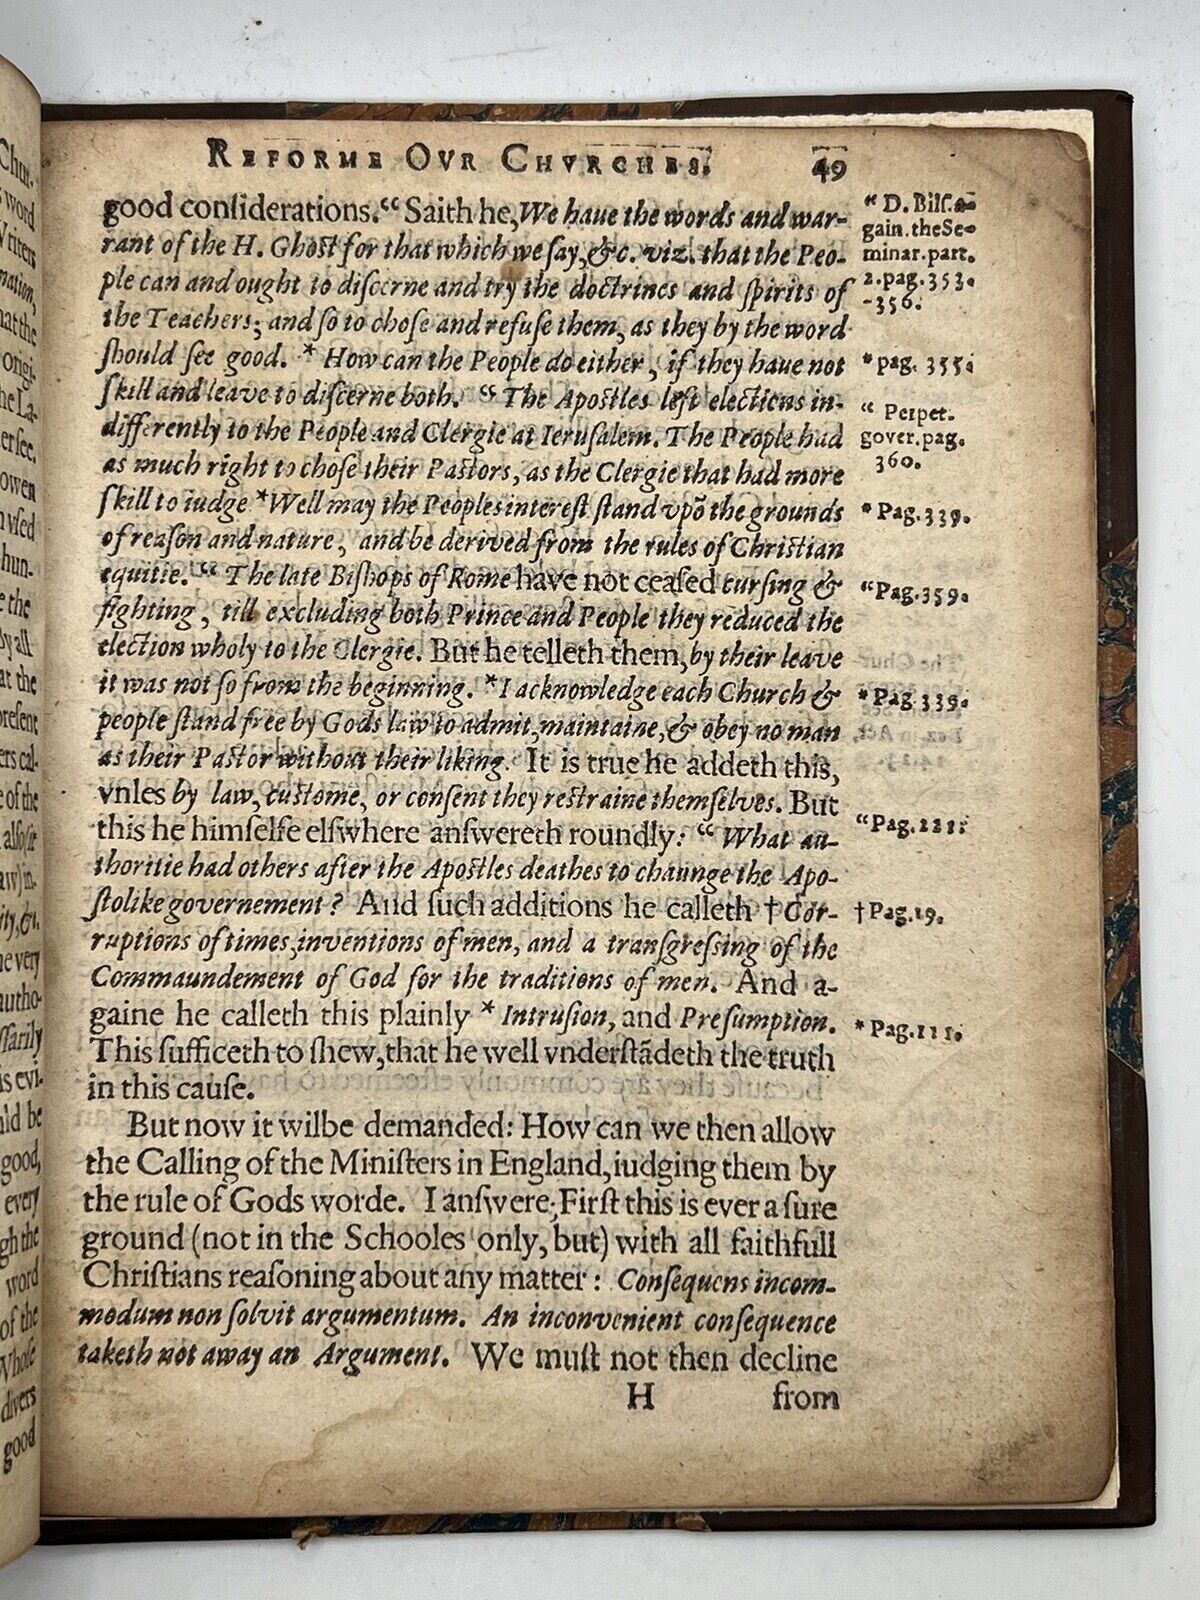 REFORME OVR CHVRCHES. 49
good conſiderations.“ Saith he, We haue the words and war-
rant of the H. Ghoſt for that which we ſay, &c. viz. that the Peo-
ple can and ought to diſcerne and try the doctrines and ſpirits of
the Teachers; and ſo to choſe and refuſe them, as they by the word
ſhould ſee good. * How can the People do either, if they haue not
ſkill and leave to diſcerne both. “ The Apoſtles left elections in-
differently to the People and Clergie at Ieruſalem. The People had
as much right to choſe their Paſtors, as the Clergie that had more
ſkill to iudge *Well may the Peoples intereſt ſtand vpõ the grounds
of reaſon and nature, and be derived from the rules of Chriſtian
equitie. “ The late Biſhops of Rome have not ceaſed curſing &
fighting, till excluding both Prince and People they reduced the
election wholy to the Clergie. But he telleth them, by their leave
it was not ſo from the beginning. *I acknowledge each Church &
people ſtand free by Gods law to admit, maintaine, & obey no man
as their Paſtor without their liking. It is true he addeth this,
vnles by law, cuſtome, or conſent they reſtraine themſelves. But
this he himſelfe elſwhere anſwereth roundly: “ What au-
thoritie had others after the Apoſtles deathes to chaunge the Apo-
ſtolike governement? And ſuch additions he calleth † Cor-
ruptions of times, inventions of men, and a tranſgreſſing of the
Commaundement of God for the traditions of men. And a-
gaine he calleth this plainly * Intruſion, and Preſumption.
This ſufficeth to ſhew, that he well vnderſtãdeth the truth
in this cauſe.
But now it wilbe demanded: How can we then allow
the Calling of the Miniſters in England, iudging them by
the rule of Gods worde. I anſwere; Firſt this is ever a ſure
ground (not in the Schooles only, but) with all faithfull
Chriſtians reaſoning about any matter: Conſequens incom-
modum non ſolvit argumentum. An inconvenient conſequence
taketh not away an Argument. We muſt not then decline
H from
“ D. Bilſ. a-
gain. the Se-
minar. part.
2. pag. 353.
-356.
* pag. 355.
“ Perpet.
gover. pag.
360.
* Pag. 339.
“ Pag. 359.
* Pag. 339.
“ Pag. 111.
† Pag. 19.
* Pag. 111.